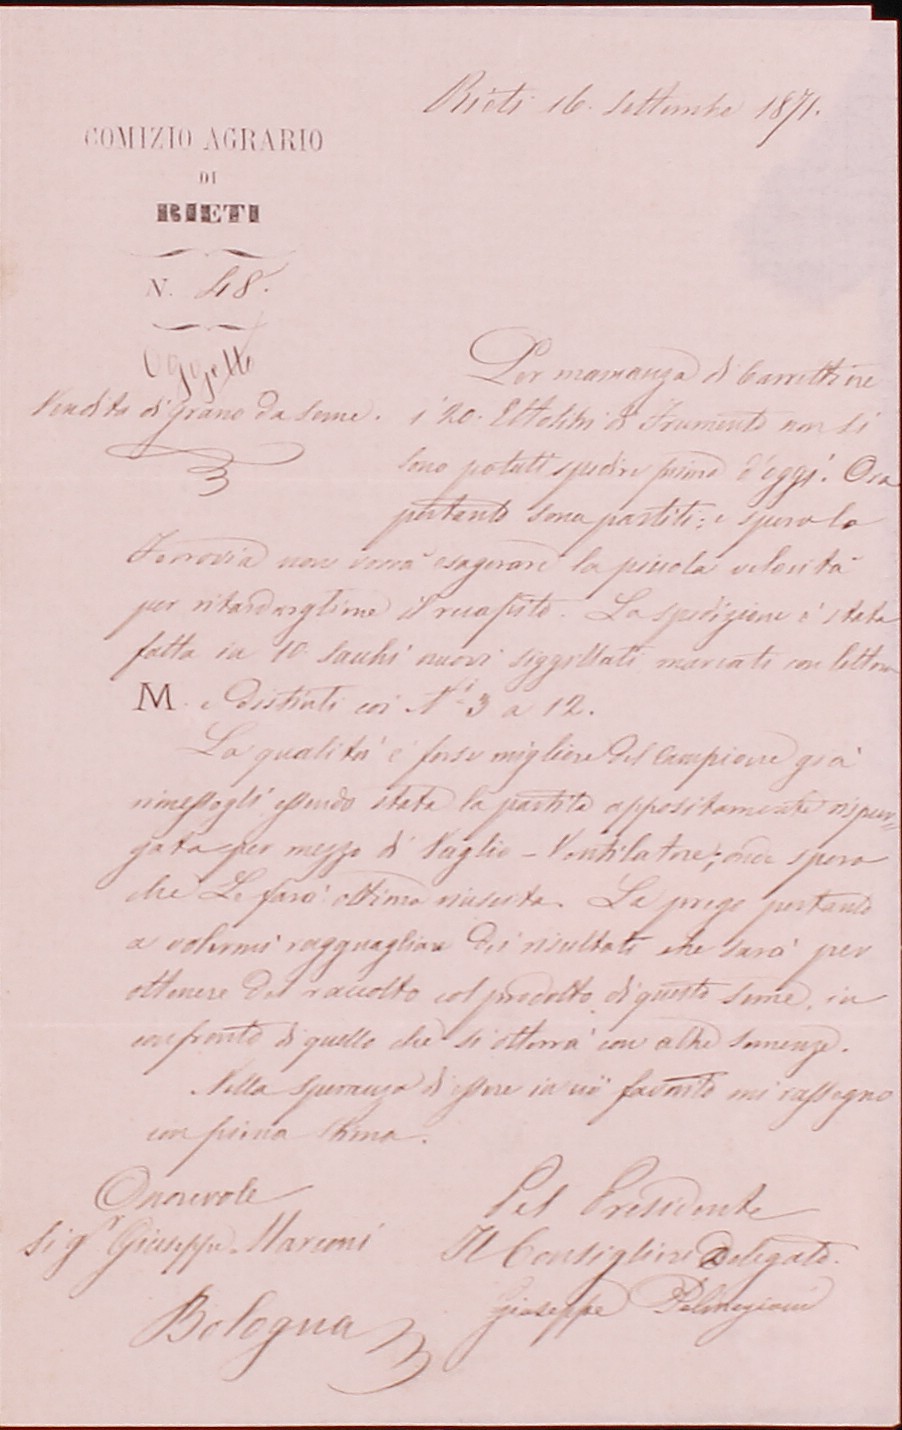 Rieti 16. Settembre 1871.
COMIZIO AGRARIO
DI
RIETI
N. 48.
Oggetto
Vendita di grano da seme.
Per mancanza di Carrettiere
i 20. Ettolitri di Frumento non si
sono potuti spedire prima d'oggi. Ora
pertanto sono partiti: e spero la
Ferrovia non vorrà esagerare la piccola velocità
per ritardargliene il recapito. La spedizione è stata
fatta in 10 sacchi nuovi siggillati marcati con lettera
M. e distinti coi Ni 3 a 12.
La qualità è forse migliore del Campione già
rimessogli essendo stata la partita appositamente rispur=
gata per mezzo di Vaglio-Ventilatore; onde spero
che Le farà ottima riuscita. La prego pertanto
a volermi ragguagliare dei risultati che sarà per
ottenere del raccolto col prodotto di questo seme, in
confronto di quello che si otterrà con altre semenze.
Nella speranza di essere in ciò favorito mi rassegno
con piena stima.
Onorevole
Sigr Giuseppe Marconi
Bologna
Pel Presidente
Il Consigliere Delegato.
Giuseppe Palmegiani